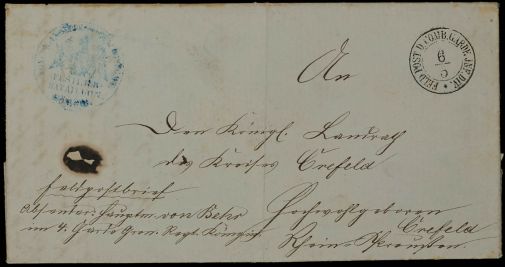 FELD POST D. COMB. GARDE INF. DIV.
6/5
FÜSILIER
BATAILLON
An
Den Königl. Landrath
des Kreises Crefeld
Hochwohlgeboren
Crefeld
Rhein-Preußen.
Feldpostbrief
Absender: Hauptm. von Behr
im 4. Garde Gren. Regt. Königin